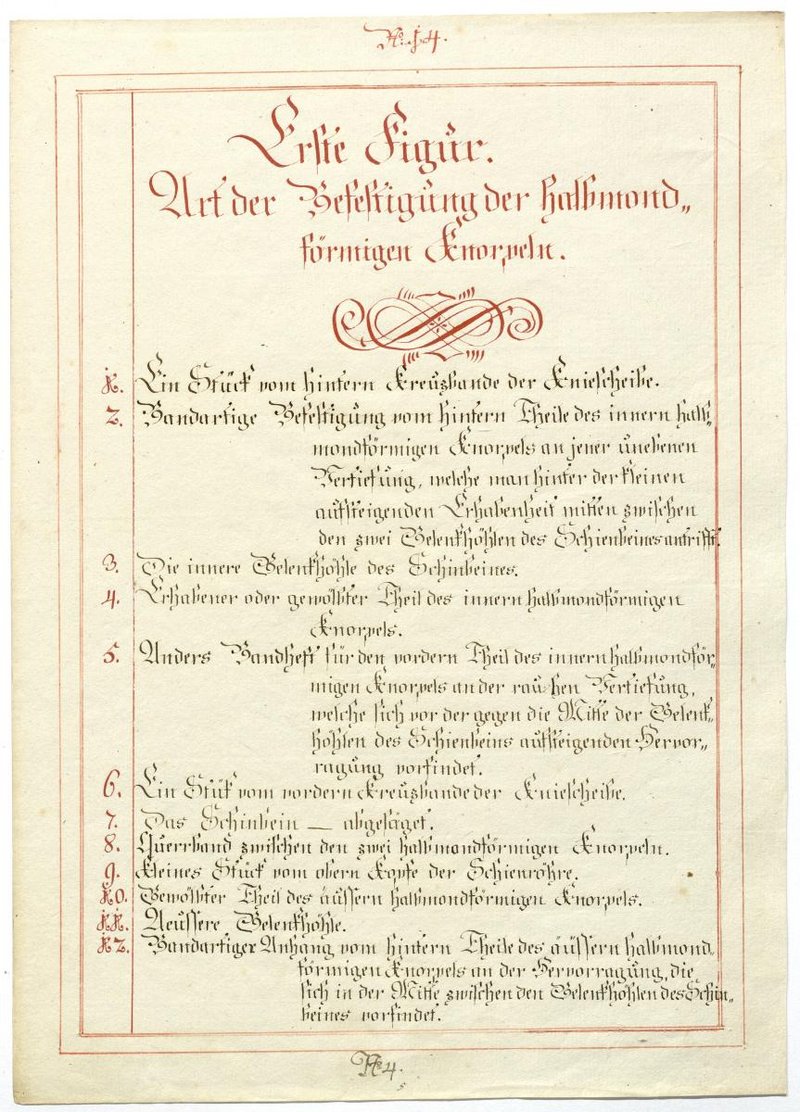 N. 4.
Erste Figur.
Art der Befestigung der halbmond„
förmigen Knorpeln.
1. Ein Stück vom hintern Kreuzbande der Kniescheibe.
2. Bandartige Befestigung vom hintern Theile des innern halb„
mondförmigen Knorpels an jener unebenen
Vertiefung, welche man hinter der kleinen
aufsteigenden Erhabenheit mitten zwischen
den zwei Gelenkhöhlen des Schienbeines antrifft.
3. Die innere Gelenkhöhle des Schinbeines.
4. Erhabener oder gewölbter Theil des innern halbmondförmigen
Knorpels.
5. Anders Bandheft für den vordern Theil des innern halbmondför„
migen Knorpels an der rauhen Vertiefung,
welche sich vor der gegen die Mitte der Gelenk„
höhlen des Schienbeins aufsteigenden Hervor„
ragung vorfindet.
6. Ein Stük vom vordern Kreuzbande der Kniescheibe.
7. Das Schinbein — abgesäget.
8. Querrband zwischen den zwei halbmondförmigen Knorpeln.
9. Kleines Stück vom obern Kopfe der Schienröhre.
10. Gewölbter Theil des äussern halbmondförmigen Knorpels.
11. Aeussere Gelenkhöhle.
12. Bandartiger Anhang vom hintern Theile des äussern halbmond„
förmigen Knorpels an der Hervorragung, die
sich in der Mitte zwischen den Gelenkhöhlen des Schin„
beines vorfindet.
N 4.